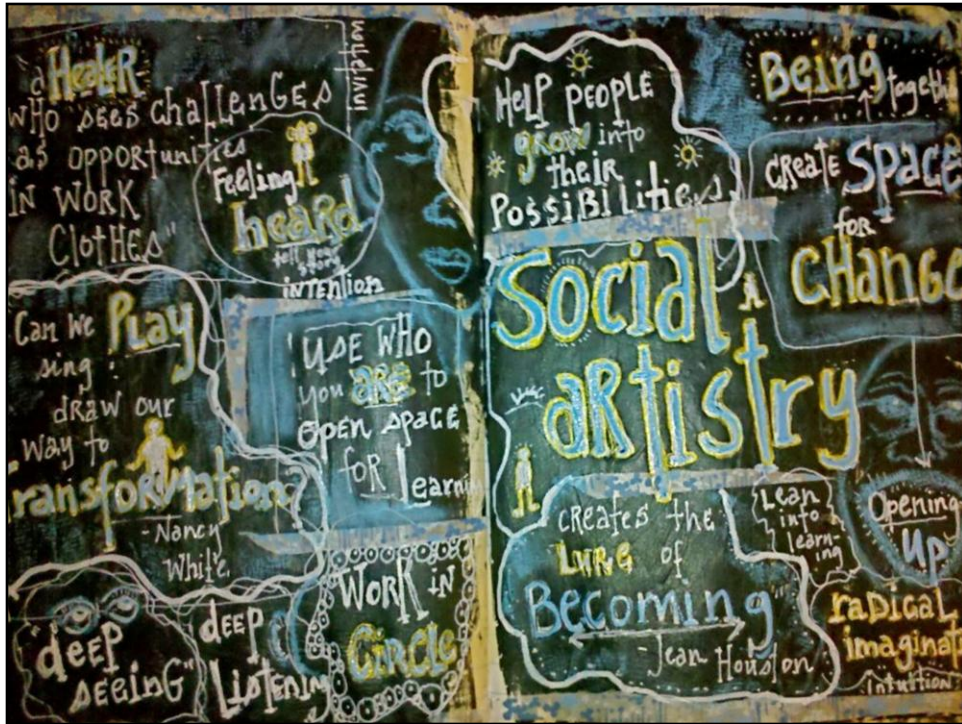 "a HEALER
WHO SEES CHALLENGES
as OPPORTUNITIES
IN WORK
CLOTHES"
Feeling
heard
tell your
story
intention
Can we PLAY
sing
draw our
way to
Transformation
- Nancy
White
USE WHO
YOU ARE to
OPEN SPACE
FOR Learning
"deep
SEEING"
DEEP
LISTENING
WORK IN
CIRCLE
HELP PEOPLE
grow into
their
POSSIBILITIES
BEING
together
CREATE SPACE
FOR
CHANGE
Social
aRtistry
creates the
LURE of
Becoming"
- Jean Houston
Lean
into
learn-
ing
Opening
UP
raDical
imaginat
Intuition